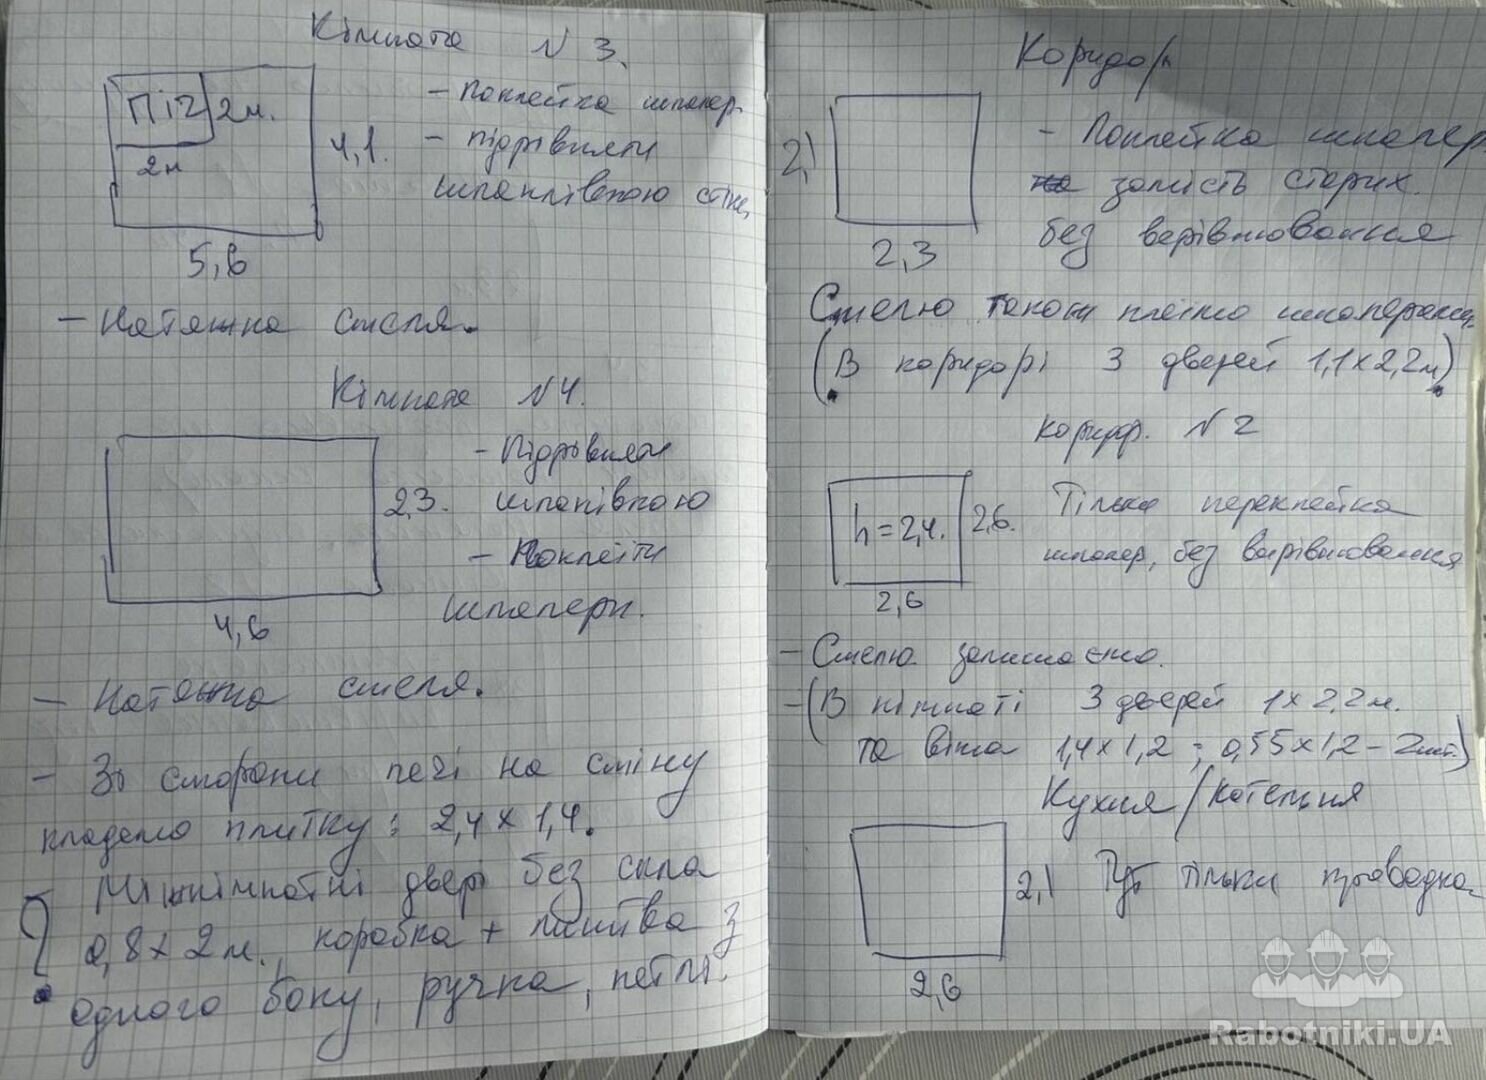 Кімната №3.
ПІЧ 2м.
2м
4,1.
5,6
- Поклейка шпалер.
- підрівняти
шпаклівкою стіни,
- Натяжна стеля.
Кімната №4.
2,3.
4,6
- Підрівняти
шпаклівкою
- Поклеїти
шпалери.
- Натяжна стеля.
- Зі сторони печі на стіну
кладемо плитку: 2,4 x 1,4.
? Міжкімнатні двері без скла
0,8 x 2 м., коробка + лиштва з
одного боку, ручка, петлі.
Коридор
2,1
2,3
- Поклейка шпалер
замість старих.
без вирівнювання
Стелю також клеїмо шпалерами.
(В коридорі 3 дверей 1,1 x 2,2 м)
коридор. №2
h = 2,4. 2,6.
2,6
Тільки переклейка
шпалер, без вирівнювання
- Стелю залишаємо.
- (В кімнаті 3 дверей 1 x 2,2 м.
та вікна 1,4 x 1,2 ; 0,55 x 1,2 - 2шт.)
Кухня / Котельня
2,1
2,6
Тут тільки проводка
Rabotniki.UA